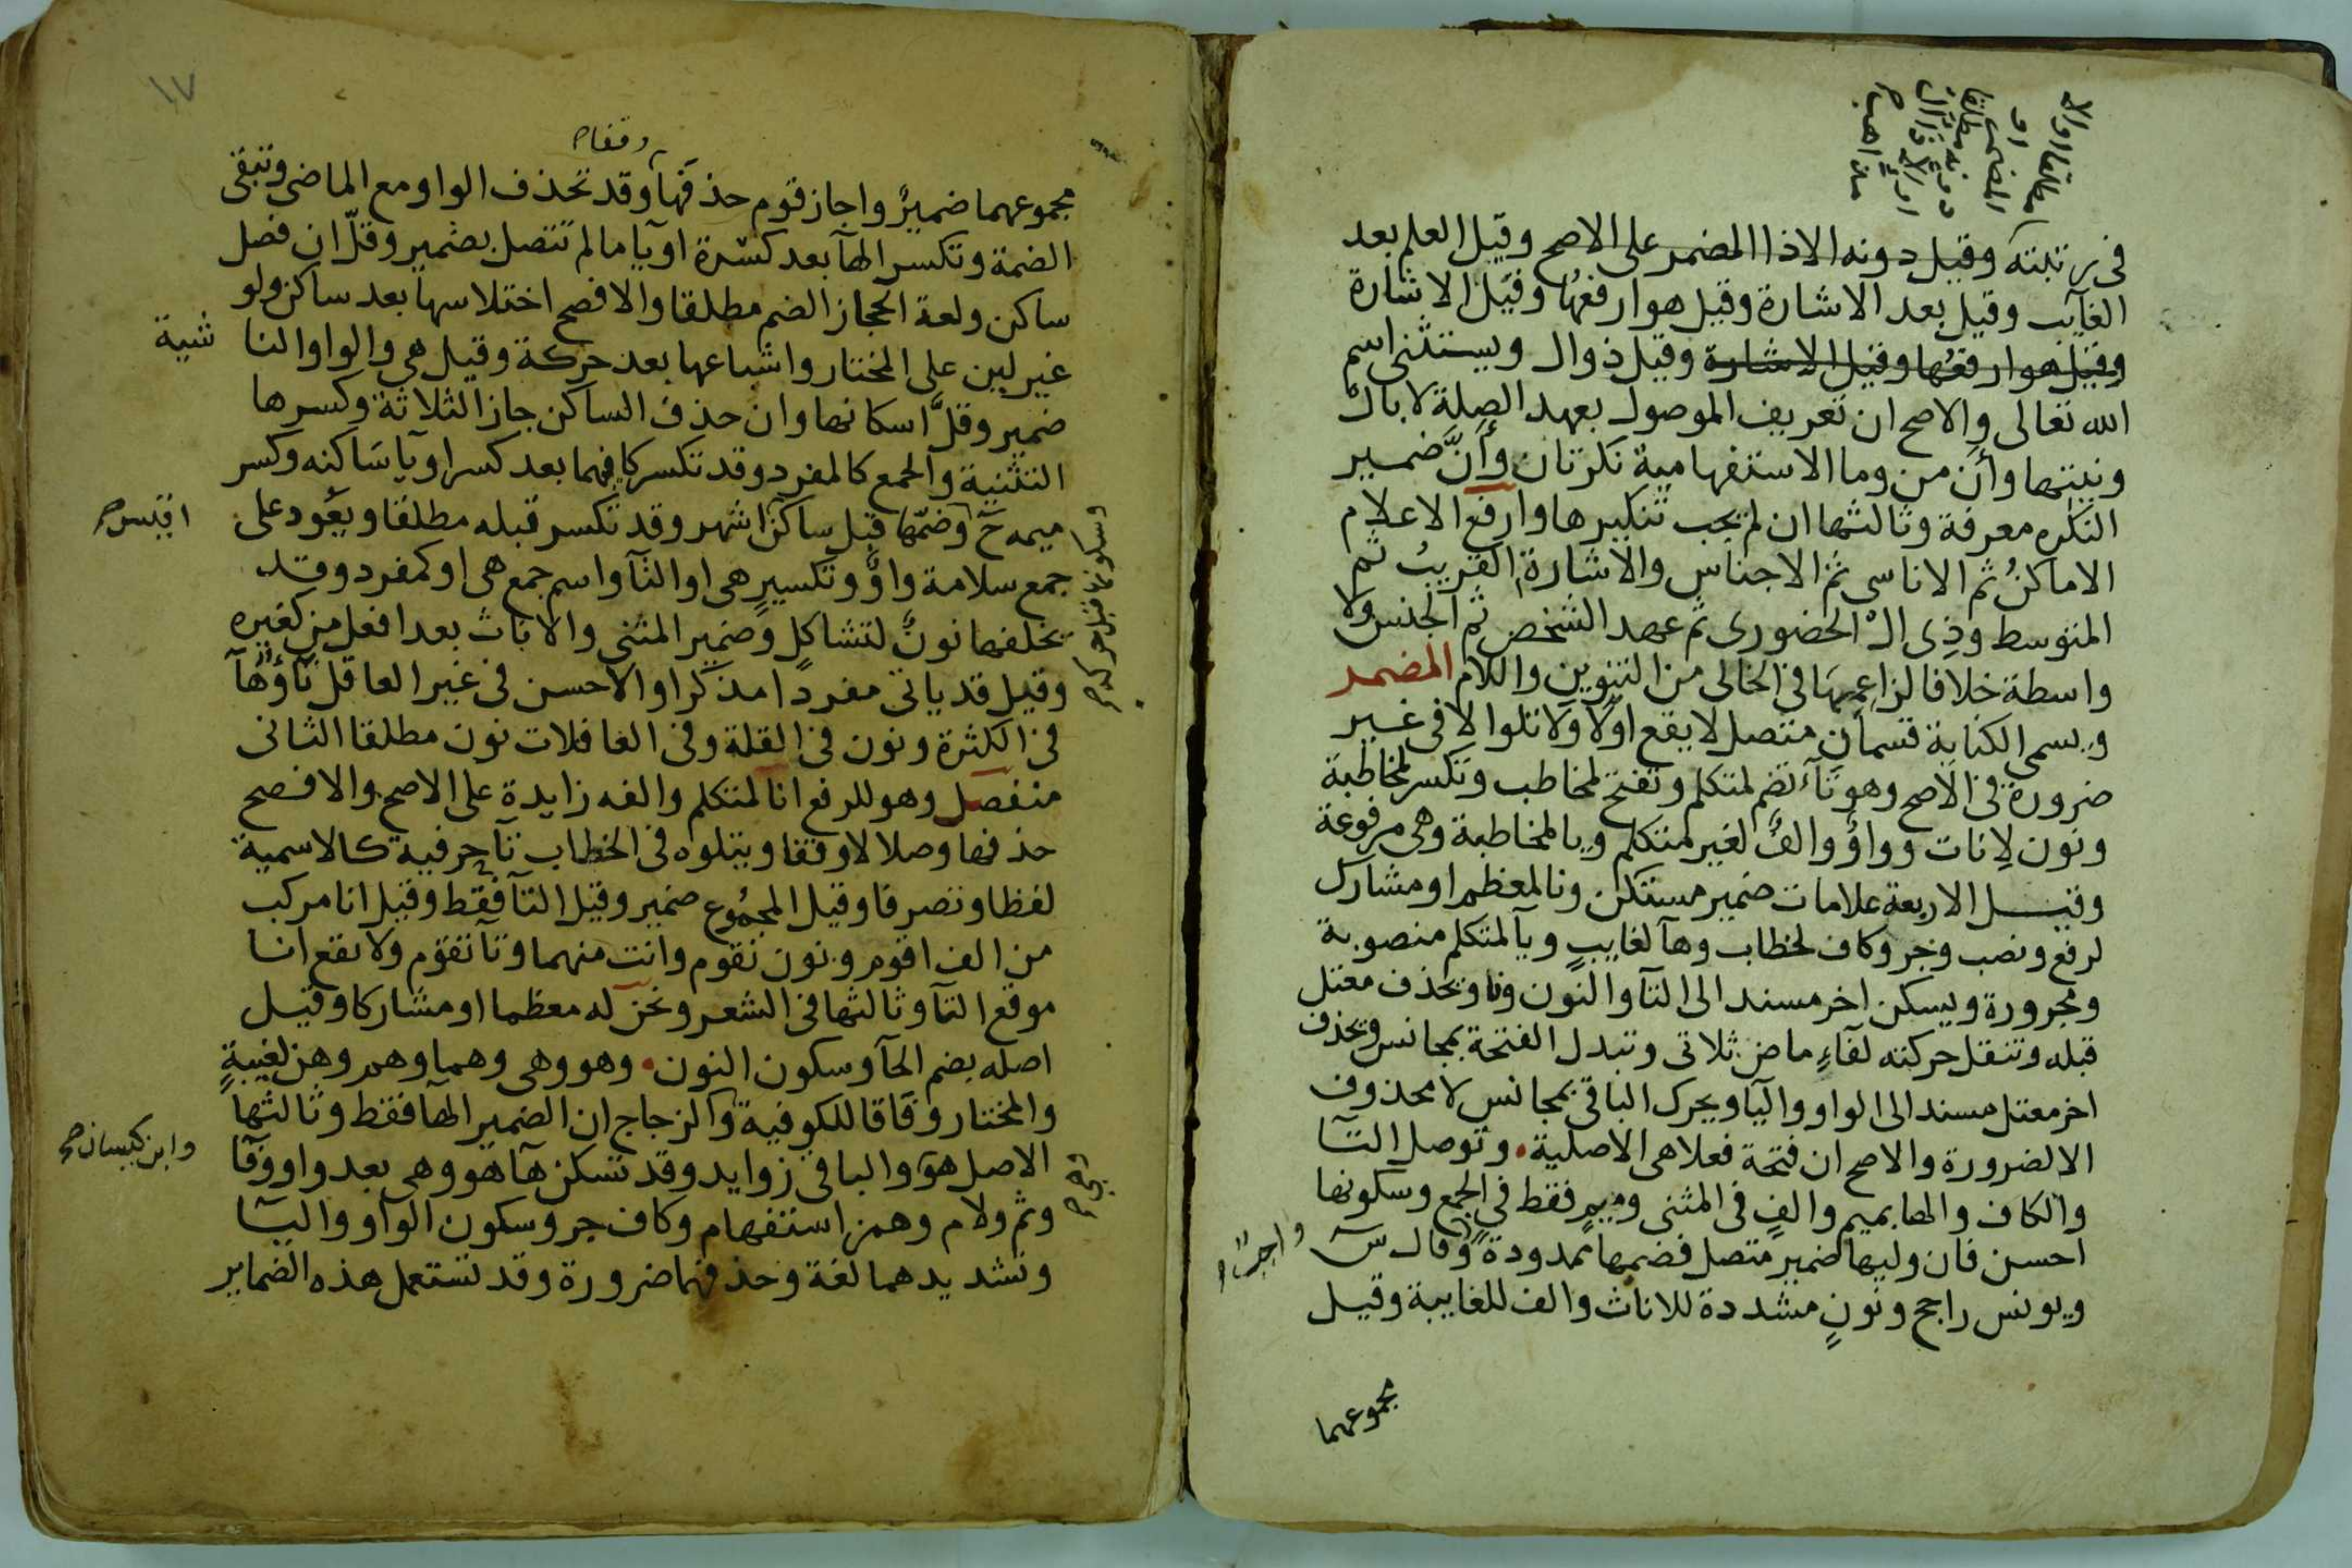 فى رتبته وقيل دونه الا ذا المضمر على الاصح وقيل العلم بعد
الغايب وقيل بعد الاشارة وقيل هو ارفعها وقيل الاشارة
وقيل هو ارفعها وقيل الاشارة وقيل ذو ال ويستثنى اسم
الله تعالى والاصح ان تعريف الموصول بعهد الصلة لا بال
ونيتها وأن من وما الاستفهامية نكرتان وأنَّ ضمير
النكره معرفة وثالثها ان لم يجب تنكيرها وارفع الاعلام
الاماكنُ ثم الاناسى ثم الاجناس والاشارة القريبُ ثم
المتوسط وذِى الْ الحضورى ثم عهد الشخص ثم الجنس ولا
واسطة خلافا لزاعمها فى الخالى من التنوين واللام المضمر
ويسمى الكناية قسمان متصل لا يقع اولا ولا تلو الا فى غير
ضرورة فى الاصح وهو تآء تضم لمتكلم وتفتح لمخاطب وتكسر لمخاطبة
ونون لاِناث وواوٌ والفٌ لغير متكلم ويا لمخاطبة وهى مرفوعة
وقيل الاربعة علامات ضمير مستكن ونا لمعظم او مشارك
لرفع ونصب وجر وكاف لخطاب وهآ لغايبٍ ويآ لمتكلم منصوبة
ومجرورة ويسكن اخر مسند الى التآ والنون ونا وتحذف معتل
قبله وتنقل حركته لفآءِ ماض ثلاثى وتبدل الفتحة بمجانس وتحذف
اخر معتل مسند الى الواو واليا ويحرك الباقى بمجانس لا محذوف
الا لضرورة والاصح ان فتحة فعلا هى الاصلية وتوصل التآ
والكاف والها بميم والفٍ فى المثنى وميمٍ فقط فى الجمع وسكونها
احسن فان وليها ضمير متصل فضمها ممدودة وقال س
ويونس راجح ونونٍ مشددة للاناث والف للغايبة وقيل
مجموعهما
١٧
وقفا
مجموعهما ضميرٌ واجاز قوم حذفها وقد تحذف الواو مع الماضى وتبقى
الضمة وتكسر الهآ بعد كسرة او يآ ما لم تتصل بضمير وقلّ ان فصل
ساكن ولغة الحجاز الضم مطلقا والافصح اختلاسها بعد ساكن ولو
غير لين على المختار واشباعها بعد حركة وقيل هى والواو النا شية
ضمير وقلَّ اسكانها وان حذف الساكن جاز الثلاثة وكسرها
التثنية والجمع كالمفرد وقد تكسر كافهما بعد كسر او يآ ساكنه وكسر
ميمه ح وضمها قبل ساكن اشهر وقد تكسر قبله مطلقا ويعود على
جمع سلامة واوٌ وتكسيرٍ هى او التآ واسم جمع هى او كمفرد وقد
يخلفها نونٌ لتشاكلٍ وضمير المثنى والاناث بعد افعل من كغيره
وقيل قد ياتى مفردا مذكرا والاحسن فى غير العاقل تآؤهآ
فى الكثرة ونون فى القلة وفى العاقلات نون مطلقا الثانى
منفصل وهو للرفع انا لمتكلم والفه زايدة على الاصح والافصح
حذفها وصلا لا وقفا ويتلوه فى الخطاب تآ حرفية كالاسمية
لفظا وتصرفا وقيل المجمُوع ضمير وقيل التآ فقط وقيل انا مركب
من الف اقوم ونون نقوم وانت منهما وتآ تقوم ولا يقع انا
موقع التآ وثالثها فى الشعر ونحن له معظما او مشاركا وقيل
اصله بضم الحآ وسكون النون وهو وهى وهما وهم وهن لغيبةٍ
والمختار وفاقا للكوفية والزجاج ان الضمير الهآ فقط وثالثها
وابن كيسان
الاصل هو والباقى زوايد وقد تسكن هآ هو وهى بعد واو وفآ
وثم ولام وهمز استفهام وكاف جر وسكون الواو واليآ
وتشديدهما لغة وحذفهما ضرورة وقد تستعمل هذه الضماير